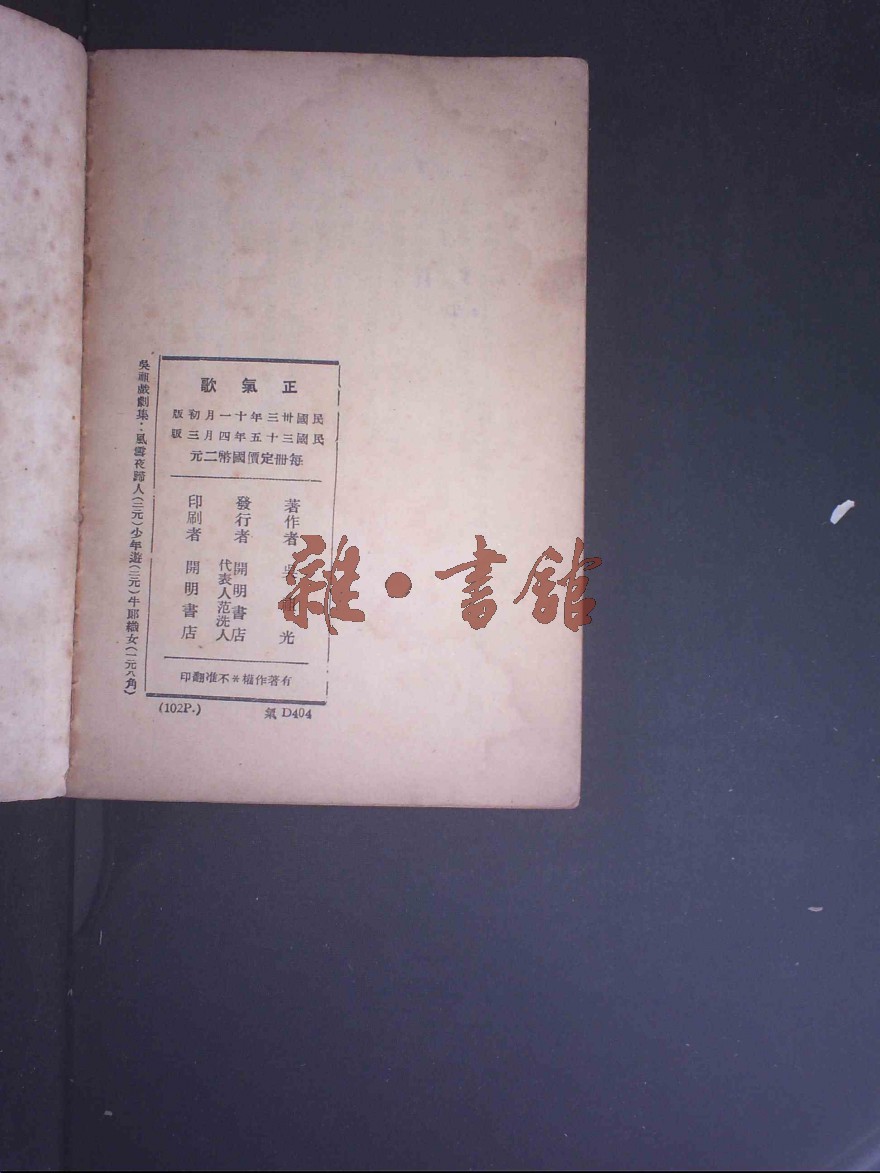 正氣歌
民國卅三年十一月初版
民國三十五年四月三版
每冊定價國幣二元
著作者 吳 光
發行者 開明書店
代表人范洗人
印刷者 開明書店
有著作權＊不准翻印
吳祖戲劇集：風雪夜歸人(三元)少年遊(二元)牛郎織女(一元八角)
(102P.) 氣 D404
雜・書館